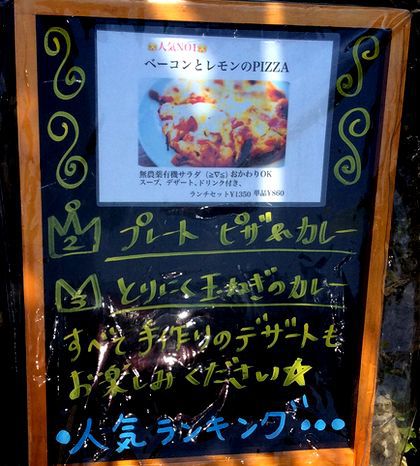 人気NO1
ベーコンとレモンのPIZZA
無農薬有機サラダ (≧∇≦) おかわりOK
スープ、デザート、ドリンク付き、
ランチセット¥1350 単品¥860
2 プレート ピザ&カレー
3 とりにく玉ねぎのカレー
すべて手作りのデザートも
お楽しみください☆
•人気ランキング•••